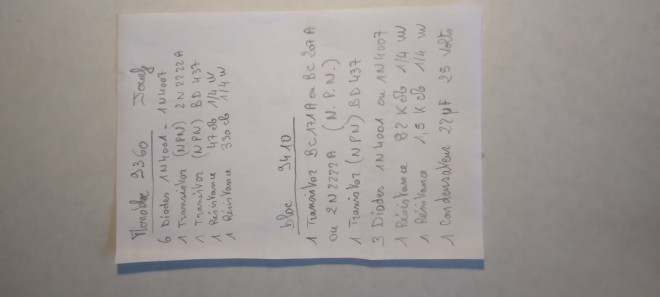 Monobloc 9360 Jouef
6 Diodes 1N4001 - 1N4007
1 Transistor (NPN) 2N2222A
1 Transistor (NPN) BD 437
1 Résistance 47 Ω 1/4 W
1 Résistance 330 Ω 1/4 W
bloc 9410
1 Transistor BC171A ou BC207A
ou 2N2222A (N.P.N.)
1 Transistor (NPN) BD 437
3 Diodes 1N4001 ou 1N4007
1 Résistance 82 K Ω 1/4 W
1 Résistance 1,5 K Ω 1/4 W
1 Condensateur 22µF 25 Volts